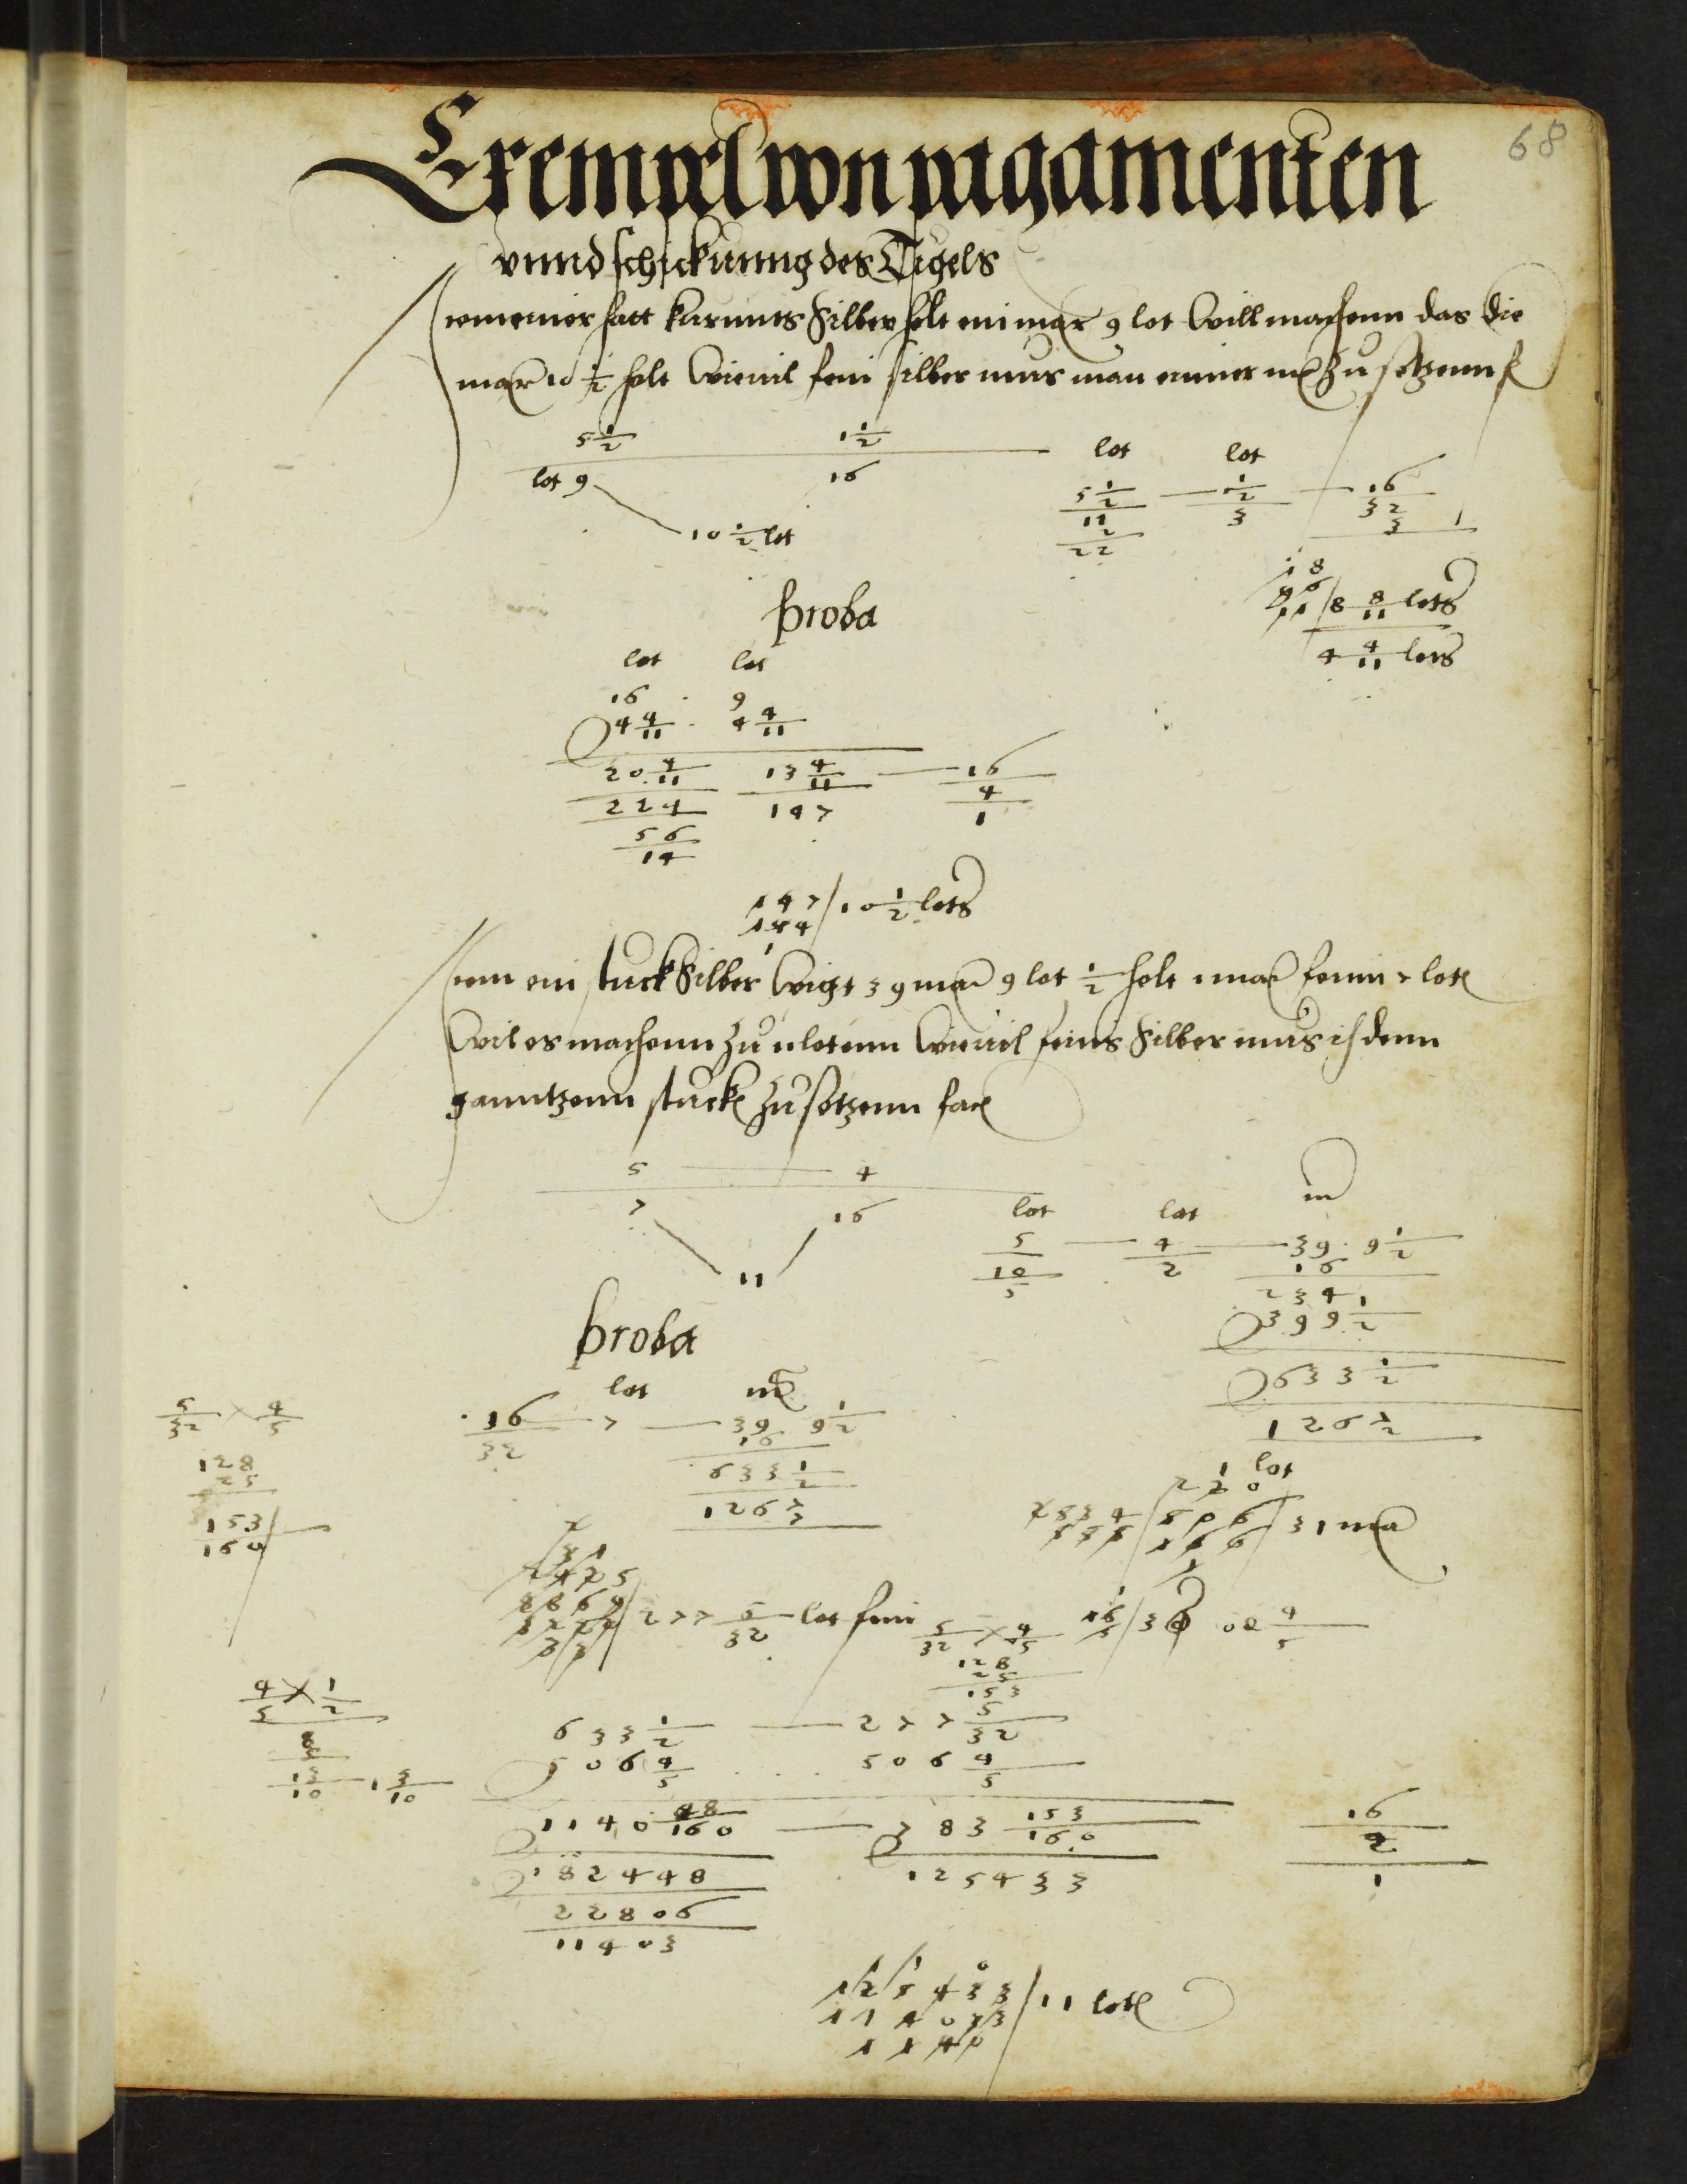 68
Exempel von pagamenten
vnnd schickunng des Tigels
Item einer hatt kurnnts Silber helt ein mar 9 lot will machenn das die
mar 10 1/2 helt wieuil fein silber mus man einner mr zu setzenn f
5 1/2 1 1/2
lot 9 16
10 1/2 lot
lot lot
5 1/2 1 1/2 16
11 3 32
2 3 1
22
18
96
11 / 8 8/11 lots
4 4/11 lots
proba
lot lot
16 9
4 4/11 4 4/11
20 4/11 13 4/11 16
224 147 4
56 1
14
147 / 10 1/2 lots
144
1
Item ein stuck Silber wigt 39 mar 9 lot 1/2 helt 1 mar fein 7 lot
wil es machenn zu 11 lotenn wieuil feins Silber mus ich denn
ganntzenn stuck zu setzenn fac
5 4
7 16
11
lot lot m
5 4 39 9 1/2
10 2 16
5 234
399 1/2
633 1/2
1267
2
lot
proba
lot mr
16 7 39 9 1/2
32 16
633 1/2
1267
7
5/32 4/5
128
25
153
160
2534 / 506 / 31 mar
277 5/32 lot fein
5/32 4/5
128
25
153
4/5
4/5 1/2
8
5
13/10 1 3/10
633 1/2 277 5/32
506 4/5 506 4/5
1140 48/160 783 153/160 16
182448 125433 2
22806 1
11403
125433 / 11 lot
11403
1140